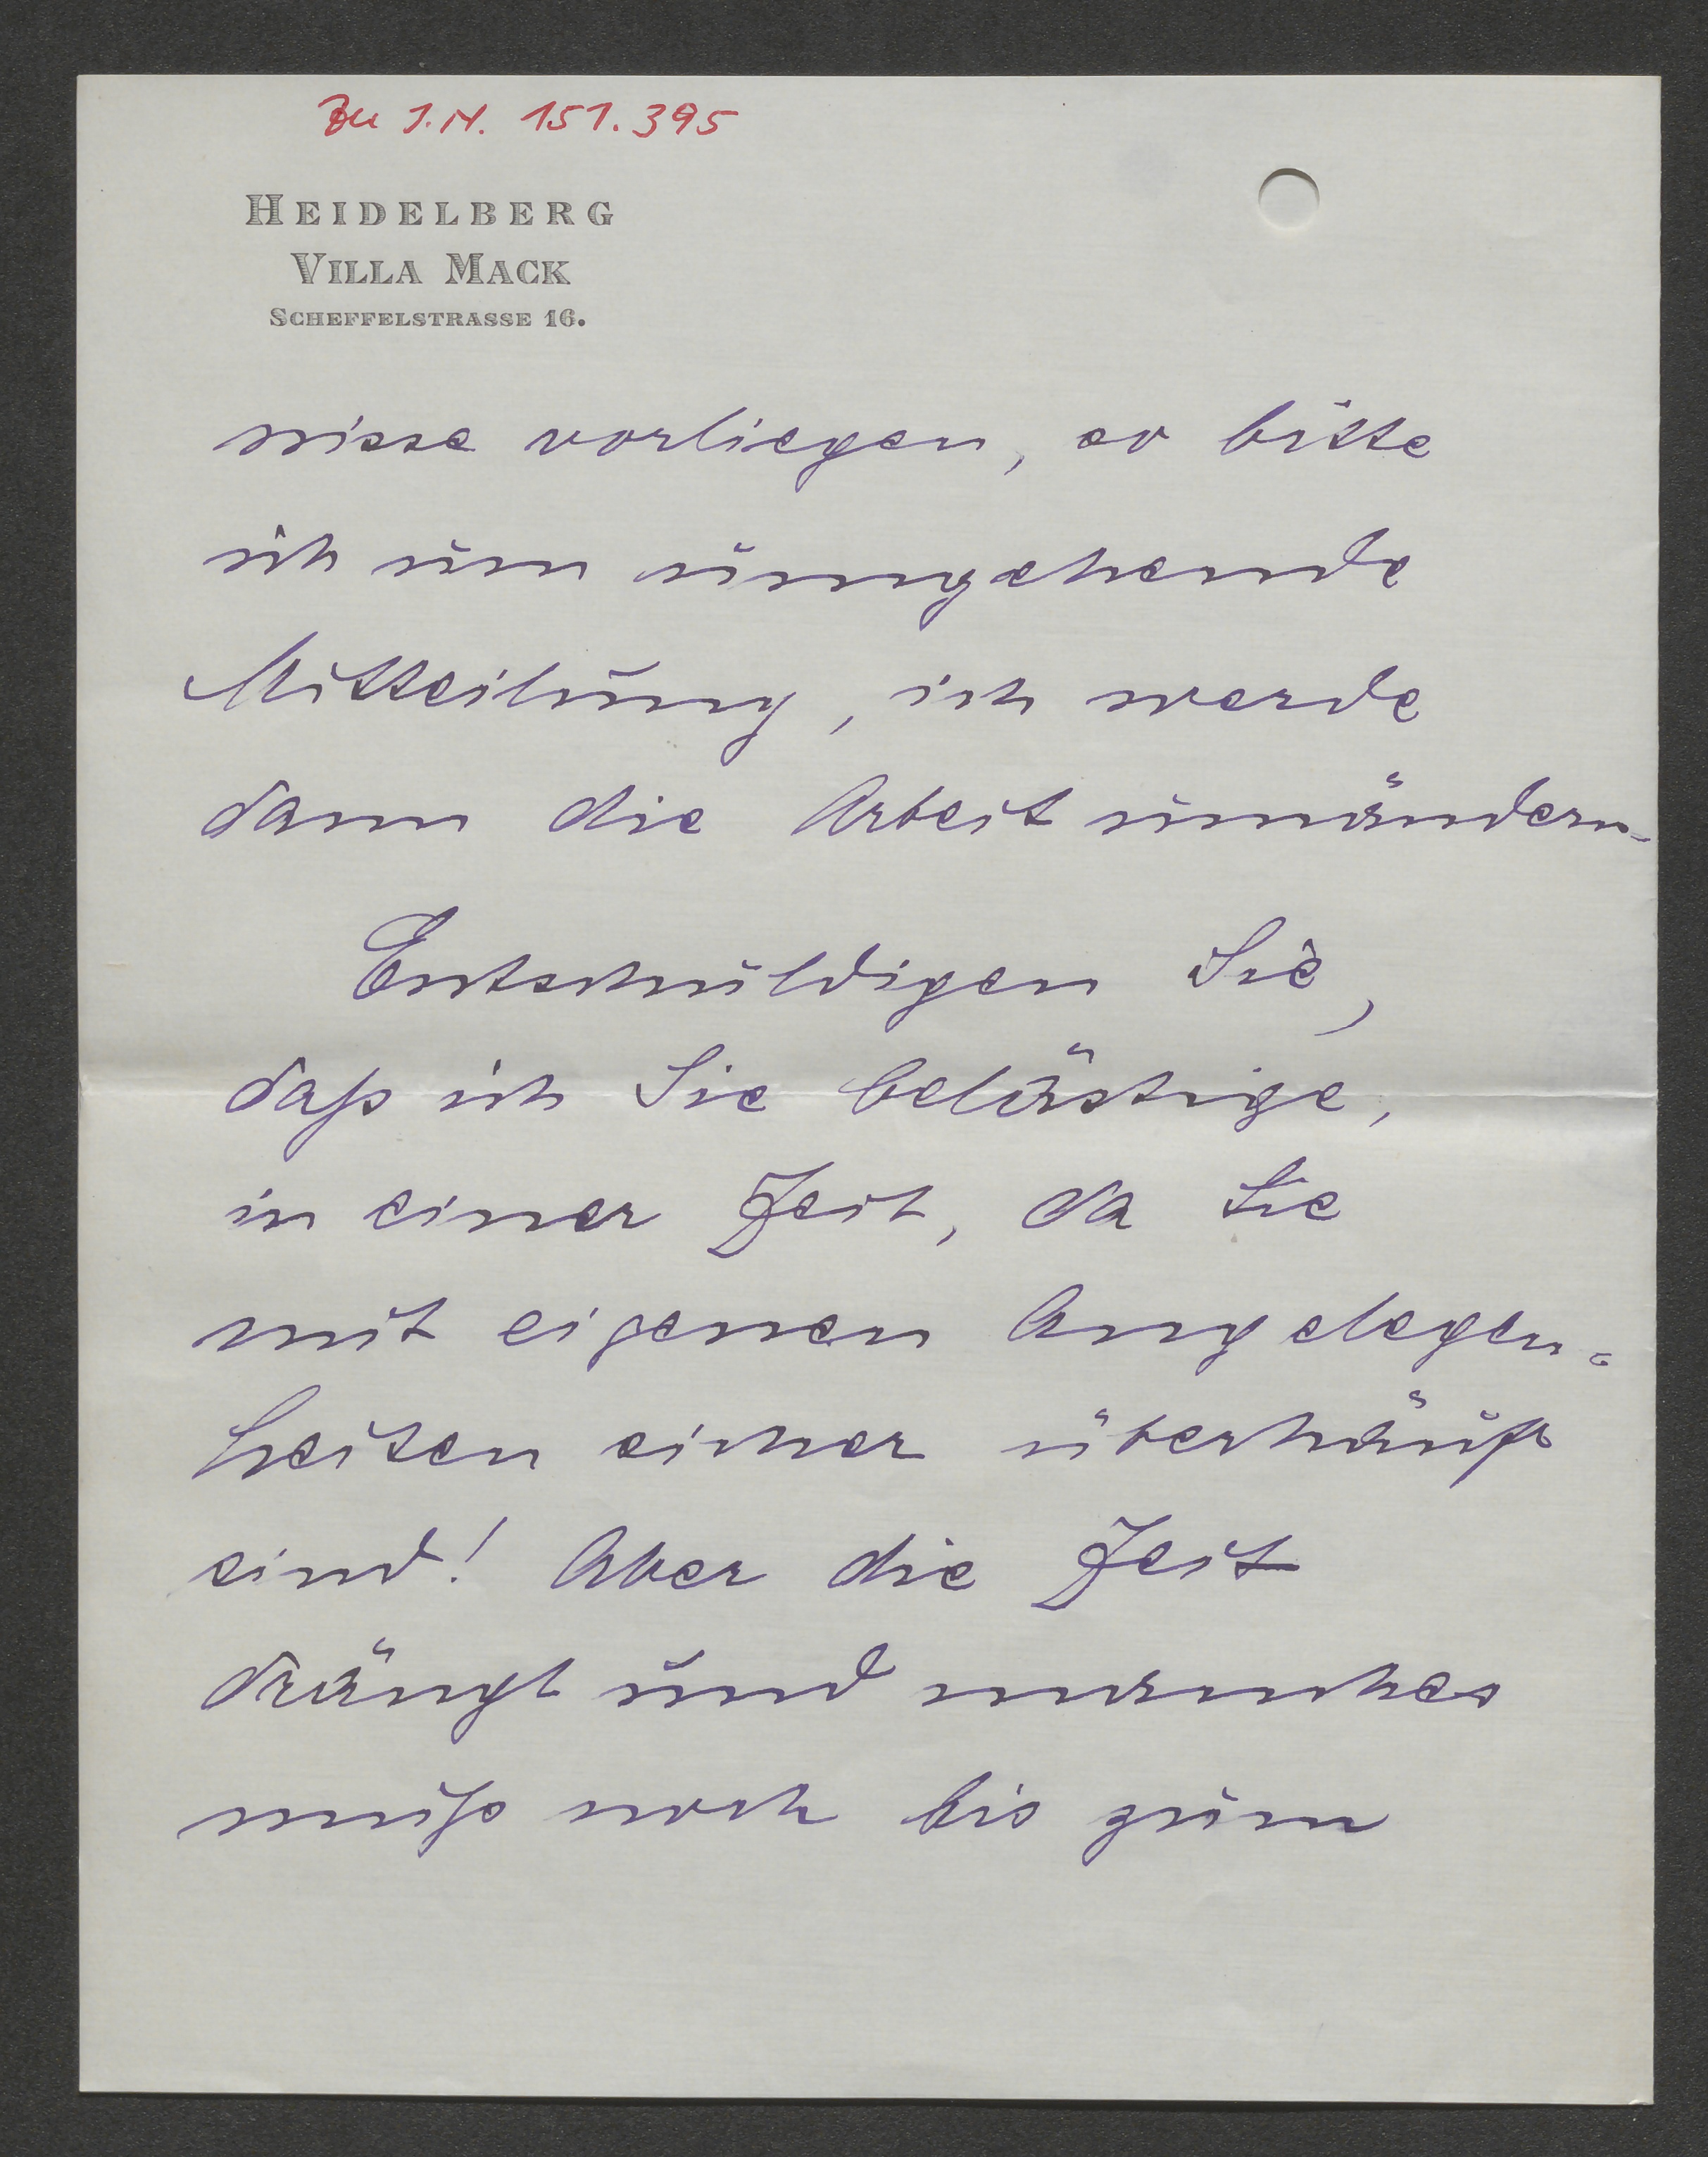 Zu I.N. 151.395
HEIDELBERG
VILLA MACK
SCHEFFELSTRASSE 16.
nisse vorliegen, so bitte
ich um umgehende
Mitteilung, ich werde
dann die Arbeit umändern.
Entschuldigen Sie,
daß ich Sie belästige,
in einer Zeit, da Sie
mit eigenen Angelegen=
heiten sicher überhäuft
sind! Aber die Zeit
drängt und manches
muß noch bis zum